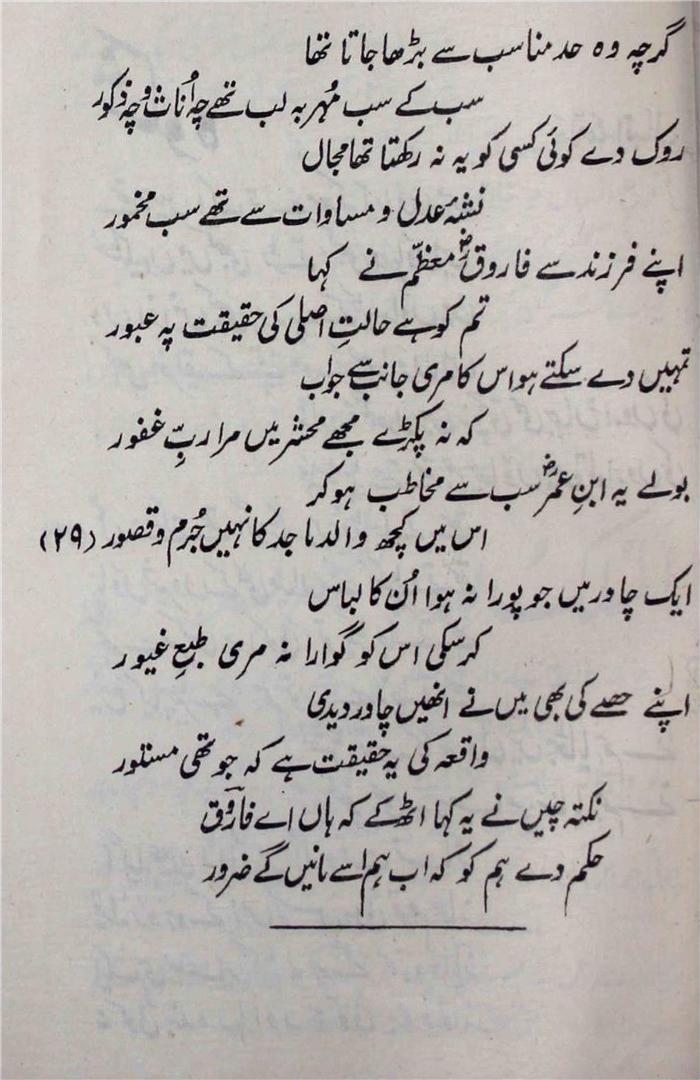 گرچہ وہ حد مناسب سے بڑھا جاتا تھا
سب کے سب مُہر بہ لب تھے چہ اُناث و چہ ذکور
روک دے کوئی کسی کو یہ نہ رکھتا تھا مجال
نشۂ عدل و مساوات سے تھے سب مخمور
اپنے فرزند سے فاروقؓ معظّم نے کہا
تم کو ہے حالتِ اصلی کی حقیقت پہ عبور
تمہیں دے سکتے ہو اس کا مری جانب سے جواب
کہ نہ پکڑے مجھے محشر میں مرا ربِّ غفور
بولے یہ ابنِ عمرؓ سب سے مخاطب ہو کر
اس میں کچھ والد ماجد کا نہیں جُرم و قصور (۲۹)
ایک چادر میں جو پورا نہ ہوا اُن کا لباس
کر سکی اس کو گوارا نہ مری طبعِ غیور
اپنے حصے کی بھی میں نے انھیں چادر دیدی
واقعہ کی یہ حقیقت ہے کہ جو تھی مستور
نکتہ چیں نے یہ کہا اٹھ کے کہ ہاں اے فاروق
حکم دے ہم کو کہ اب ہم اسے مانیں گے ضرور